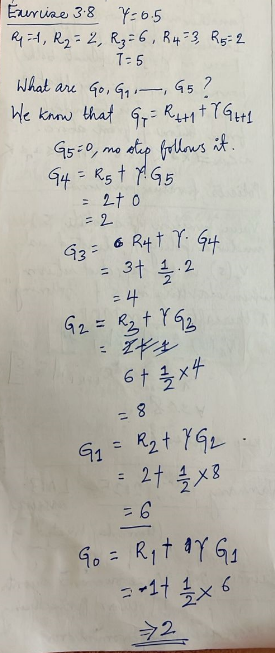 Exercise 3.8 γ=0.5
R₁=-1, R₂=2, R₃=6, R₄=3, R₅=2
T=5
What are G₀, G₁, —, G₅ ?
We know that Gₜ= Rₜ₊₁ + γGₜ₊₁
G₅=0, no step follows it.
G₄ = R₅ + γ G₅
= 2+ 0
= 2
G₃ = R₄ + γ. G₄
= 3+ 1/2 . 2
= 4
G₂ = R₃ + γ G₃
=
6 + 1/2 × 4
= 8
G₁ = R₂ + γG₂ .
= 2+ 1/2 × 8
= 6
G₀ = R₁ + γ G₁
= -1+ 1/2 × 6
⇒ 2